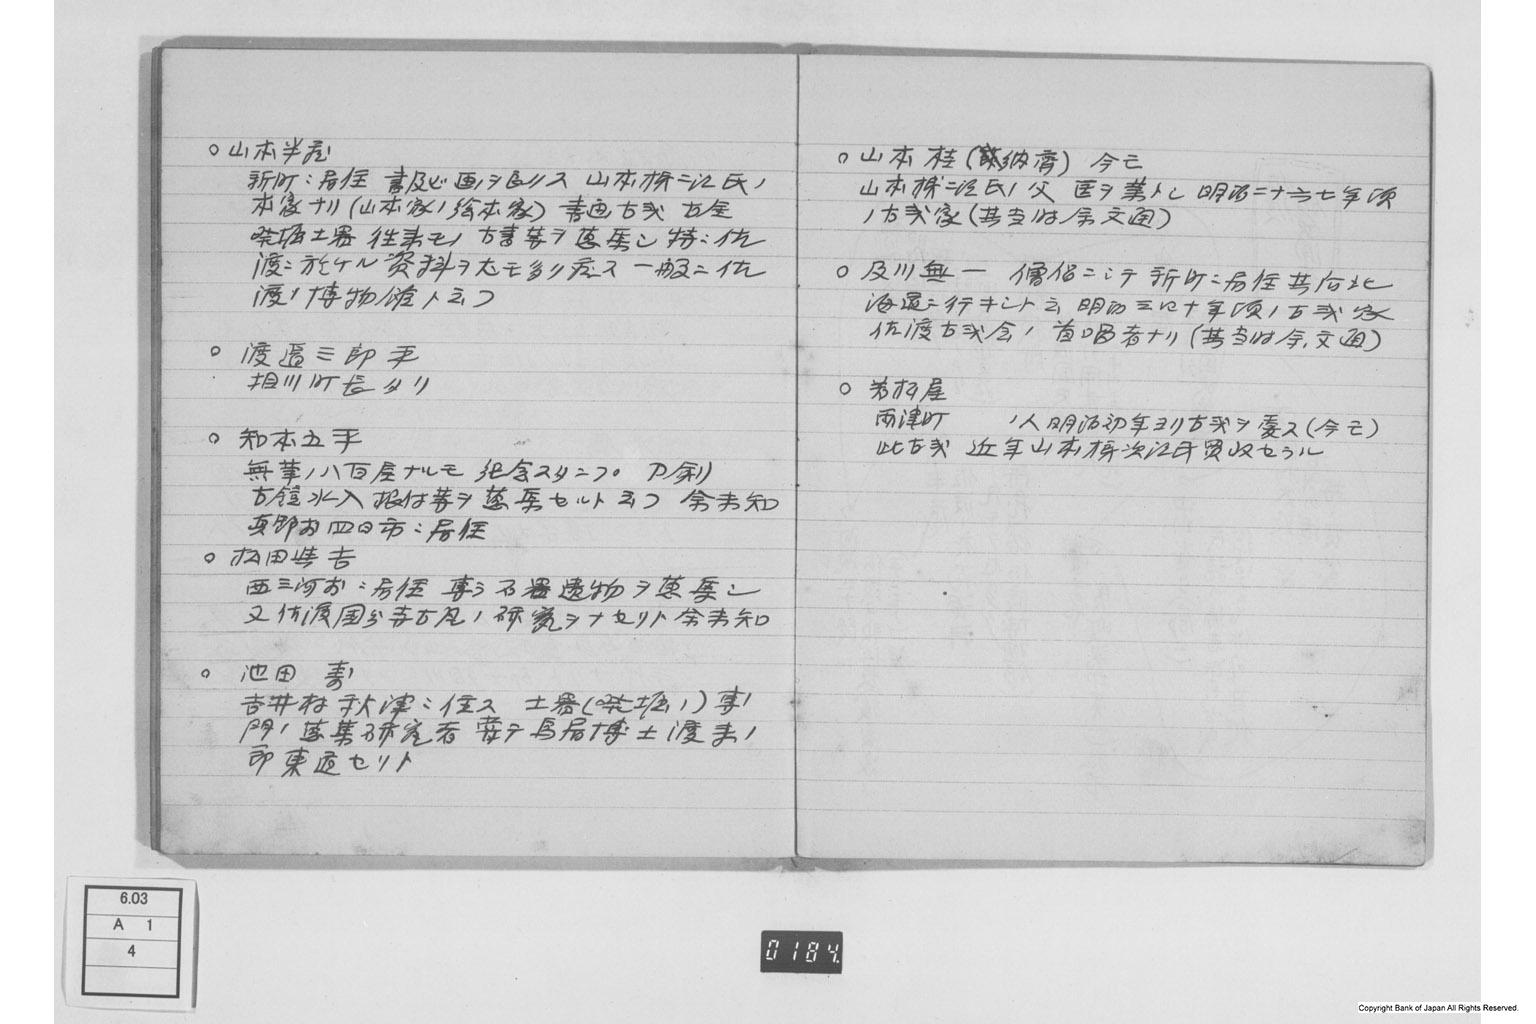 ○山本半蔵
新町ニ居住 書及ビ画ヲ良クス 山本株二江氏ノ
本家ナリ(山本家ノ総本家) 書画古文 古金
発掘土器 往来モノ 古書等ヲ蒐集シ 特ニ佐
渡ニ於ケル資料ヲ尤モ多ク蔵ス 一般ニ佐
渡ノ博物館ト云フ
○ 渡邉三郎平
相川町長タリ
○ 知本五平
無筆ノ八百屋ナルモ 紀念スタンプ 刀剣
古鏡水入 根付等ヲ蒐集セルト云フ 余未知
真野村四日市ニ居住
○ 松田 吉
西三河村ニ居住 専ラ石器遺物ヲ蒐集シ
又佐渡国分寺古瓦ノ研究ヲナセリト 余未知
○ 池田 寿
吉井村秋津ニ住ス 土器(発掘ノ)専
門ノ蒐集研究者 嘗テ鳥居博士渡来ノ
節東道セリト
○ 山本 桂( 納齊) 今亡
山本株二江氏ノ父 医ヲ業トシ 明治二十六七年頃
ノ古文家(其当時余文通)
○ 及川無一 僧侶ニシテ新町ニ居住 其后北
海道ニ行キシト云 明治三四十年頃ノ古文家
佐渡古文会ノ首唱者ナリ(其当時余文通)
○ 若松屋
両津町 ノ人 明治初年ヨリ古文ヲ愛ス(今亡)
此古文 近年山本株次江氏買収セラル
6.03
A 1
4
0184
Copyright Bank of Japan All Rights Reserved.